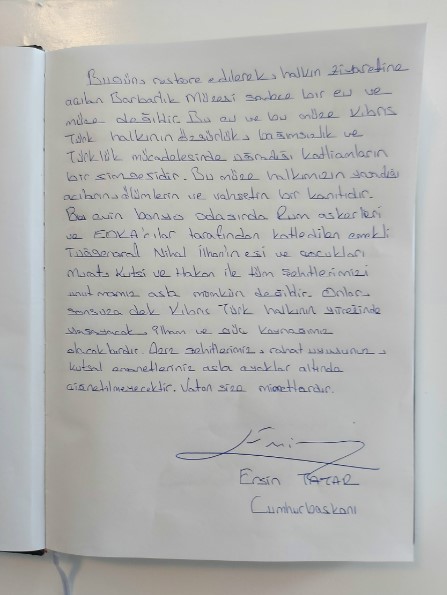 Bugün, restore edilerek, halkın ziyaretine
açılan Barbarlık Müzesi sadece bir ev ve
müze değildir. Bu ev ve bu müze Kıbrıs
Türk halkının özgürlük, bağımsızlık ve
Türklük mücadelesinde uğradığı katliamların
bir simgesidir. Bu müze halkımızın yaşadığı
acıların, ölümlerin ve vahşetin bir kanıtıdır.
Bu evin banyo odasında Rum askerleri
ve EOKA'cılar tarafından katledilen emekli
Tuğgeneral Nihat İlhan'ın eşi ve çocukları
Murat, Kutsi ve Hakan ile tüm şehitlerimizi
unutmamız asla mümkün değildir. Onlar
sonsuza dek Kıbrıs Türk halkının yüreğinde
yaşayacak, ilham ve güç kaynağımız
olacaklardır. Aziz şehitlerimiz, rahat uyuyunuz,
kutsal emanetleriniz asla ayaklar altında
çiğnetilmeyecektir. Vatan size minnettardır.
Ersin TATAR
Cumhurbaşkanı